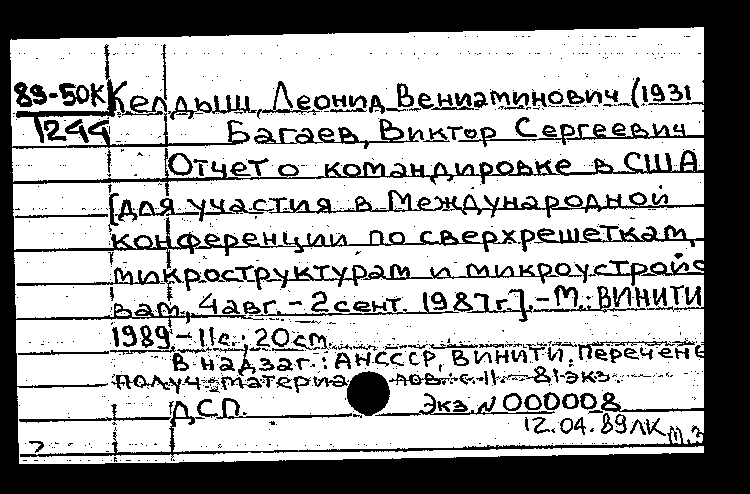 89-50К Келдыш, Леонид Вениаминович (1931
1244 Багаев, Виктор Сергеевич
Отчет о командировке в США
[для участия в Международной
конференции по сверхрешеткам,
микроструктурам и микроустройс
вам, 4 авг. - 2 сент. 1987г]. - М.: ВИНИТИ
1989. - 11с.; 20см.
В надзаг.: АН СССР, ВИНИТИ. Перечень
получ. материалов: с.11. - 81экз.
ДСП. Экз. N 000008
12.04.89 ЛК М.З